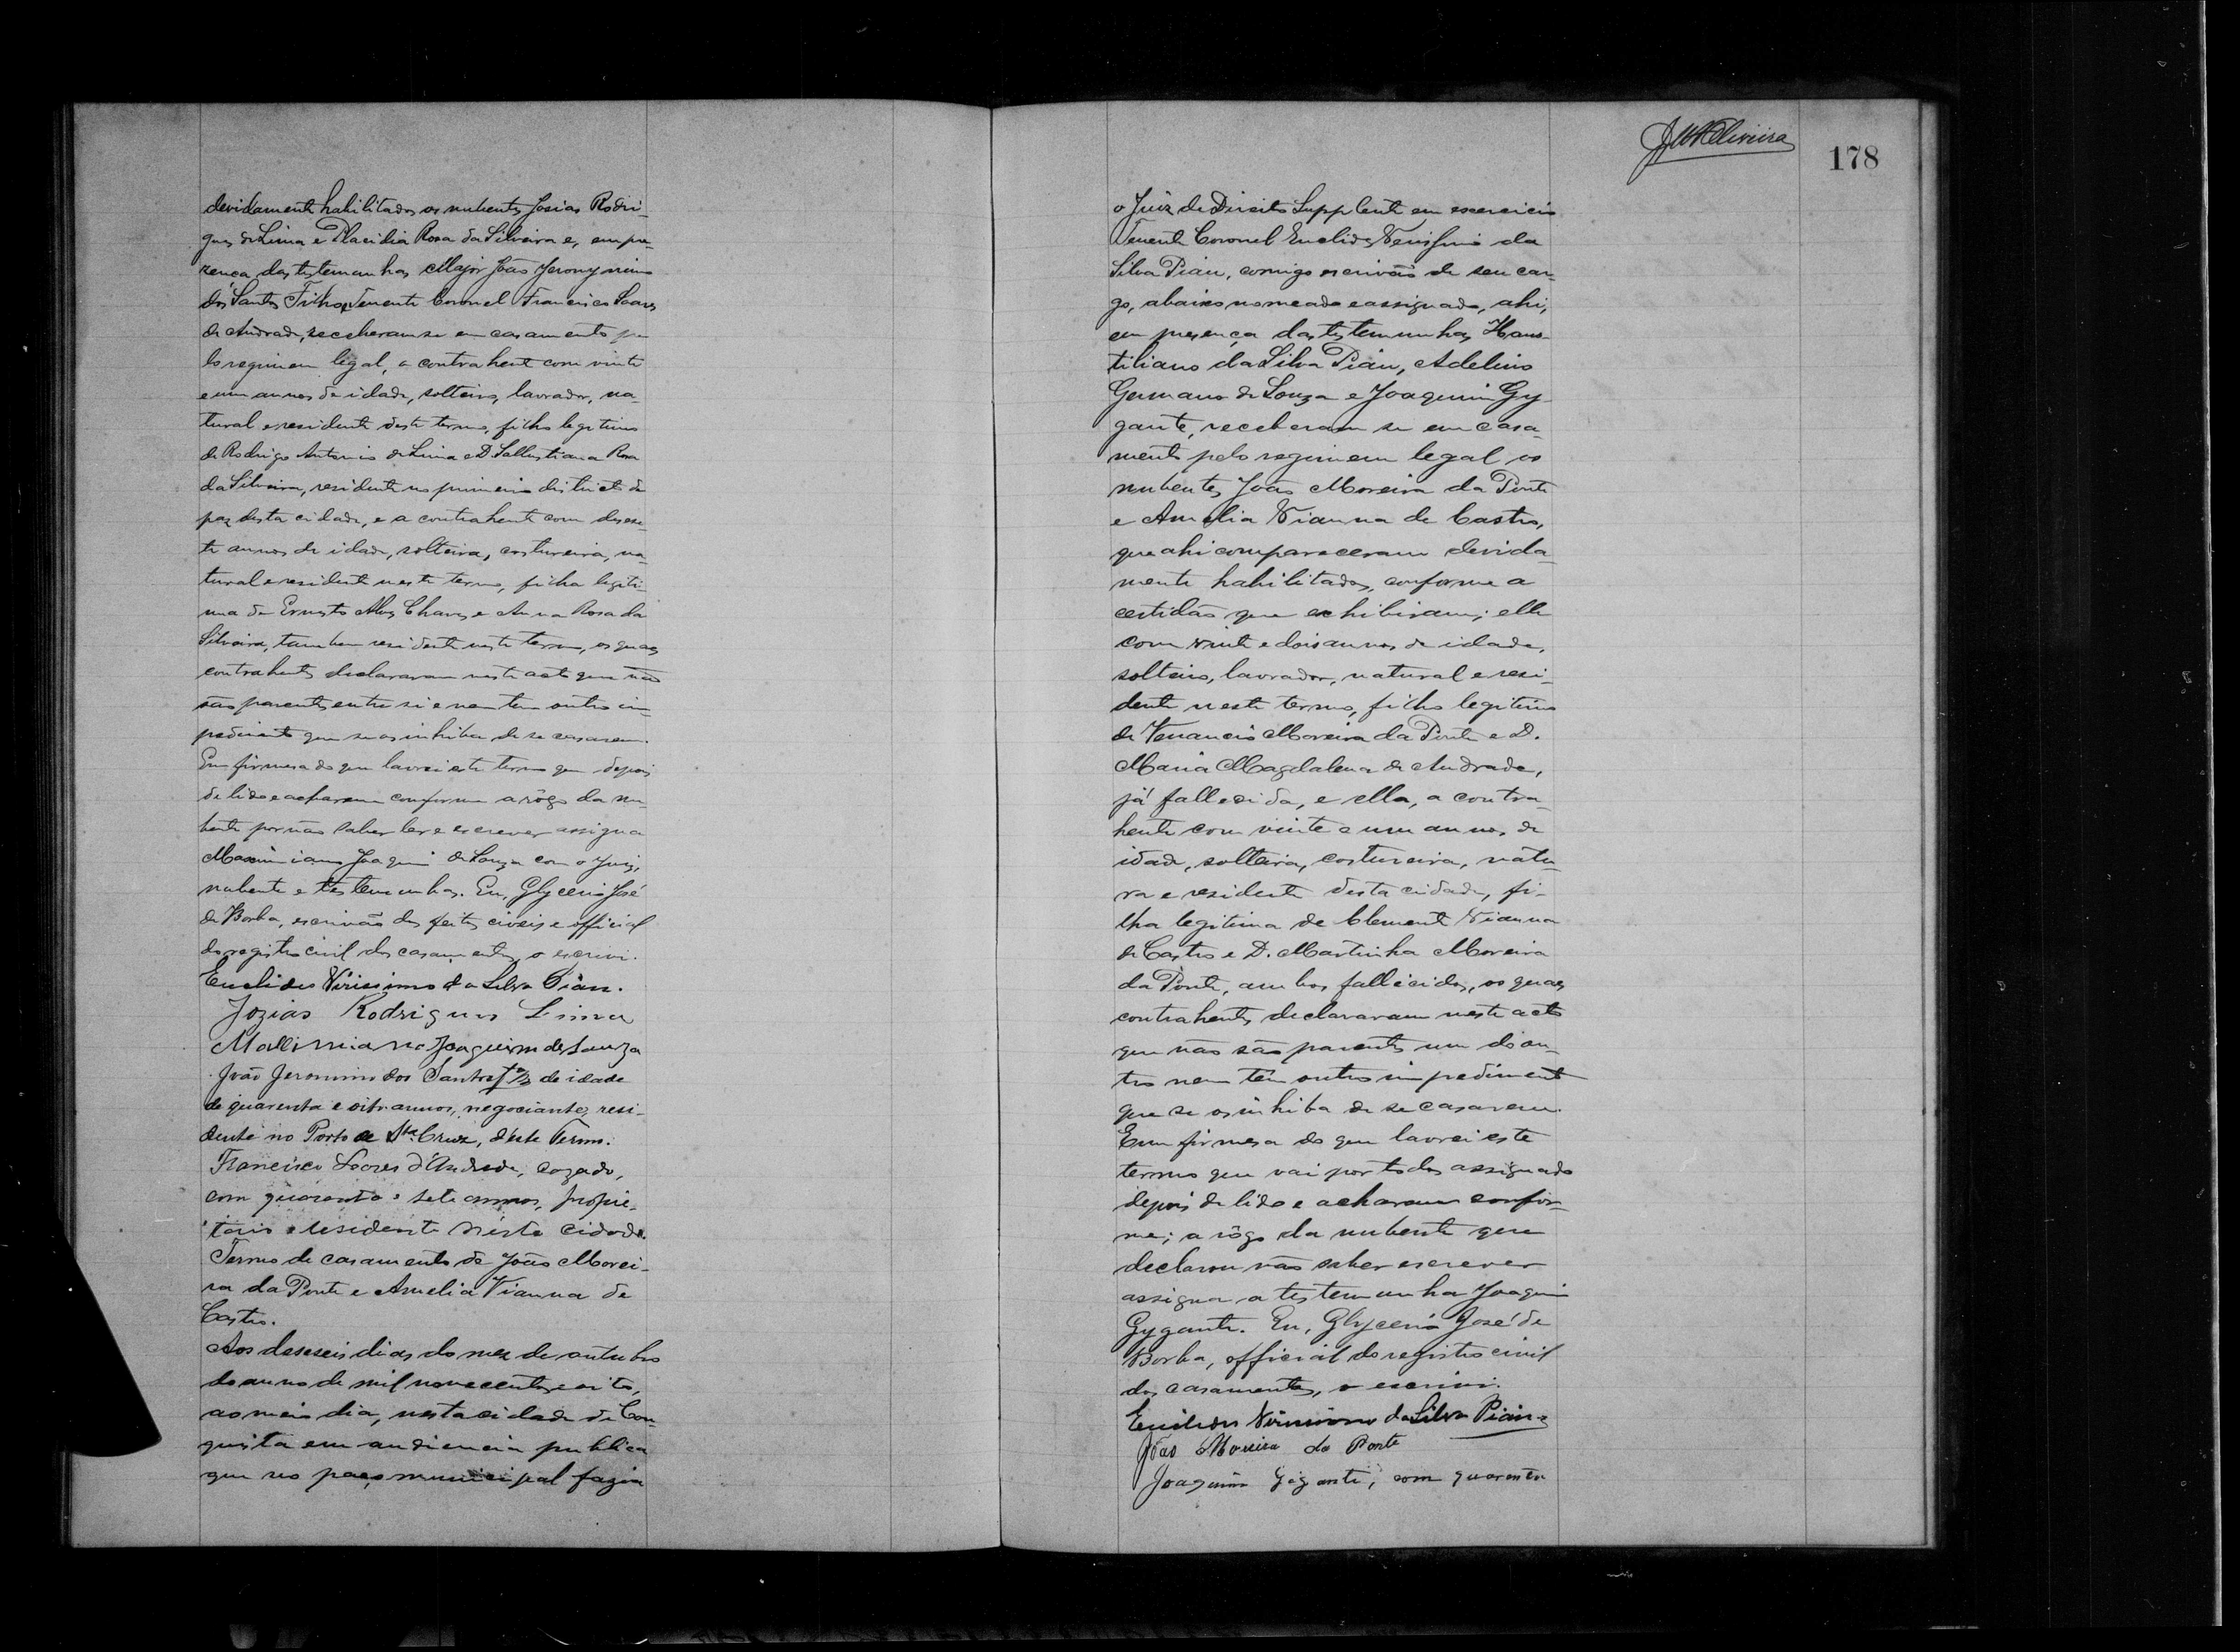 devidamente habilitados os nubentes Josias Rodri-
gues de Lima e Placilia Rosa da Silveira e, em pre-
zença das testemunhas Major João Jeronymimo
dos Santos Filho e Tenente Coronel Francisco Soares
de Andrade, receberam se em casamento pe
lo regimem legal, o contrahente com vinte
e um annos de idade, solteiro, lavrador, na-
tural e residente deste termo, filho legitimo
de Rodrigo Antonio de Lima e D. Sallustiana Rosa
da Silveira, residente no primeiro districto de
paz desta cidade, e a contrahente com desese-
te annos de idade, solteira, costureira, na-
tural e residente neste termo, filha legiti-
ma de Ernesto Alves Chaves e Anna Rosa da
Silveira, tambem residente neste termo, os quaes
contrahentes declararam neste acto que não
são parentes entre si e nem tem outro im-
pedimento que se os inhiba de se casarem.
Em firmesa do que lavrei este termo que depois
de lido e acharam conforme a rôgo da nu-
bente por não saber ler e escrever assigna
Maximiano Joaquim de Souza com o Juiz,
nubente e testemunhas. Eu, Glycerio José
de Borba, escrivão dos feitos civeis e official
do registro civil dos casamentos, o escrivi.
Euclides Virissimo da Silva Pián.
Jozias Rodrigues Lima
Mallimiano Joaquim de Souza
João Jeronimo dos Santos fº de idade
de quarenta e oito annos, negociante, resi-
dente no Porto de Sta. Cruz, d'este Termo.
Francisco Soares d'Andrade, cazado,
com quarenta e sete annos, proprie-
tario e residente nésta cidade.
Termo de casamento de João Morei-
ra da Ponte e Amelia Vianna de
Castro.
Aos deseseis dias do mez de outubro
do anno de mil novecentos e oito,
ao meio dia, nesta cidade de Con-
quista em audiencia publica
que no paço municipal fazia
JM Oliveira
178
o Juiz de Direito Supplente em exercicio
Tenente Coronel Euclides Verissimo da
Silva Pián, comigo escrivão de seu car-
go, abaixo nomeado e assignado, ahi,
em presença das testemunhas Haus-
tiliano da Silva Pián, Adelino
Germano de Souza e Joaquim Gy-
gante, receberam se em casa-
mento pelo regimem legal os
nubentes João Moreira da Ponte
e Amelia Vianna de Castro,
que ahi compareceram devida-
mente habilitados, conforme a
certidão que exhibiram; elle
com vinte e dois annos de idade,
solteiro, lavrador, natural e resi-
dente neste termo, filho legitimo
de Venancio Moreira da Ponte e D.
Maria Magdalena de Andrade,
já fallecida, e ella, a contra-
hente com vinte e um annos de
idade, solteira, costureira, natu-
ra e residente desta cidade, fi-
lha legitima de Clemente Vianna
de Castro e D. Martinha Moreira
da Ponte, ambos fallecidos, os quaes
contrahentes declararam neste acto
que não são parentes um do ou-
tro nem têm outro impedimento
que se os inhiba de se casarem.
Em firmesa do que lavrei este
termo que vai por todos assignado
depois de lido e acharam confor-
me; a rôgo da nubente que
declarou não saber escrever
assigna a testemunha Joaquim
Gygante. Eu, Glycerio José de
Borba, official do registro civil
dos casamentos, o escrivi.
Euclides Virissimo da Silva Pián
João Moreira da Ponte
Joaquim Gigante, com quarenta